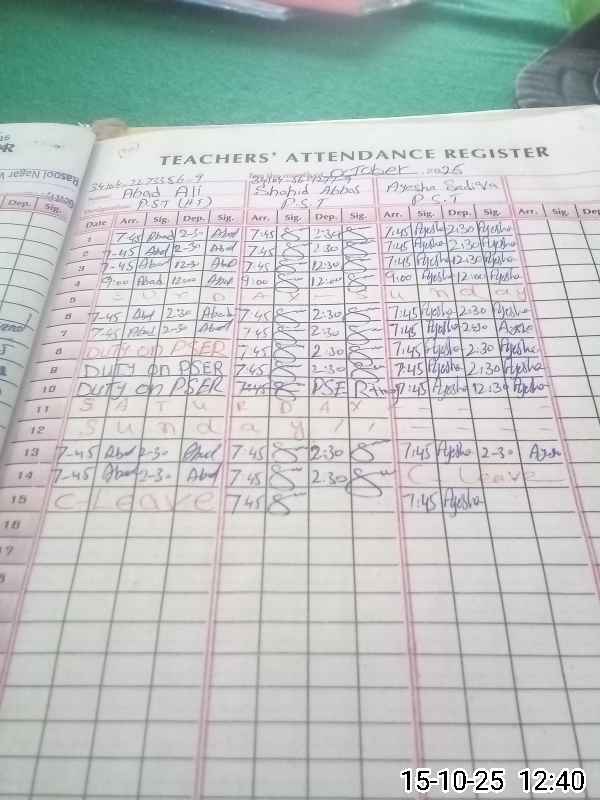 TEACHERS' ATTENDANCE REGISTER
October 2025
Abad Ali Shahid Abbas Ayesha Sadiqa
PST (HT) P.S.T P.S.T
Dep. Sig. Date Arr. Sig. Dep. Sig. Arr. Sig. Dep. Sig. Arr. Sig. Dep. Sig. Arr. Sig. Dep.
1 7-45 Abad 2-30 Abad 7:45 2:30 7:45 Ayesha 2:30 Ayesha
2 7-45 Abad 2-30 Abad 7:45 2:30 7:45 Ayesha 2:30 Ayesha
3 7-45 Abad 12-30 Abad 7:45 12:30 7:45 Ayesha 12:30 Ayesha
4 9:00 Abad 12:00 Abad 9:00 12:00 9:00 Ayesha 12:00 Ayesha
5 SUNDAY - Sunday
6 7-45 Abad 2:30 Abad 7:45 2:30 7:45 Ayesha 2:30 Ayesha
7 7-45 Abad 2-30 Abad 7:45 2:30 7:45 Ayesha 2:30
8 DUTY on PSER 7:45 2:30 7:45 Ayesha 2:30 Ayesha
9 DUTY on PSER 7:45 2:30 7:45 Ayesha 2:30 Ayesha
10 DUTY on PSER 7:45 PSER 7:45 Ayesha 12:30 Ayesha
11 SATURDAY - - - -
12 Sunday // - - - -
13 7-45 Abad 2-30 Abad 7:45 2:30 7:45 Ayesha 2-30
14 7-45 Abad 2-30 Abad 7:45 2:30 C - Leave
15 C-Leave 7:45 7:45 Ayesha
16
17
15-10-25 12:40